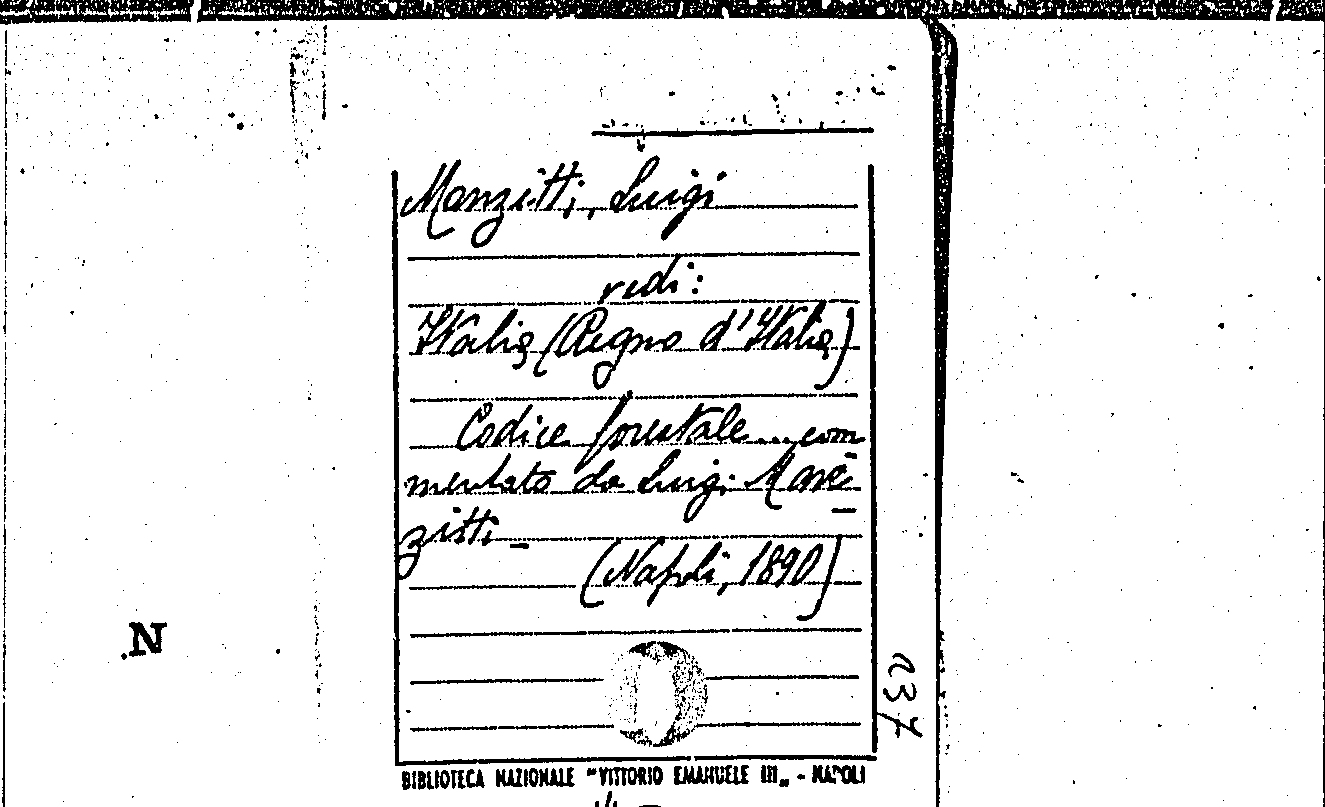 Manzitti, Luigi
vedi:
Italia (Regno d'Italia)
Codice forestale... com
mentato da Luigi Man=
zitti_
(Napoli, 1890)
N
237
BIBLIOTECA NAZIONALE "VITTORIO EMANUELE III„ - NAPOLI